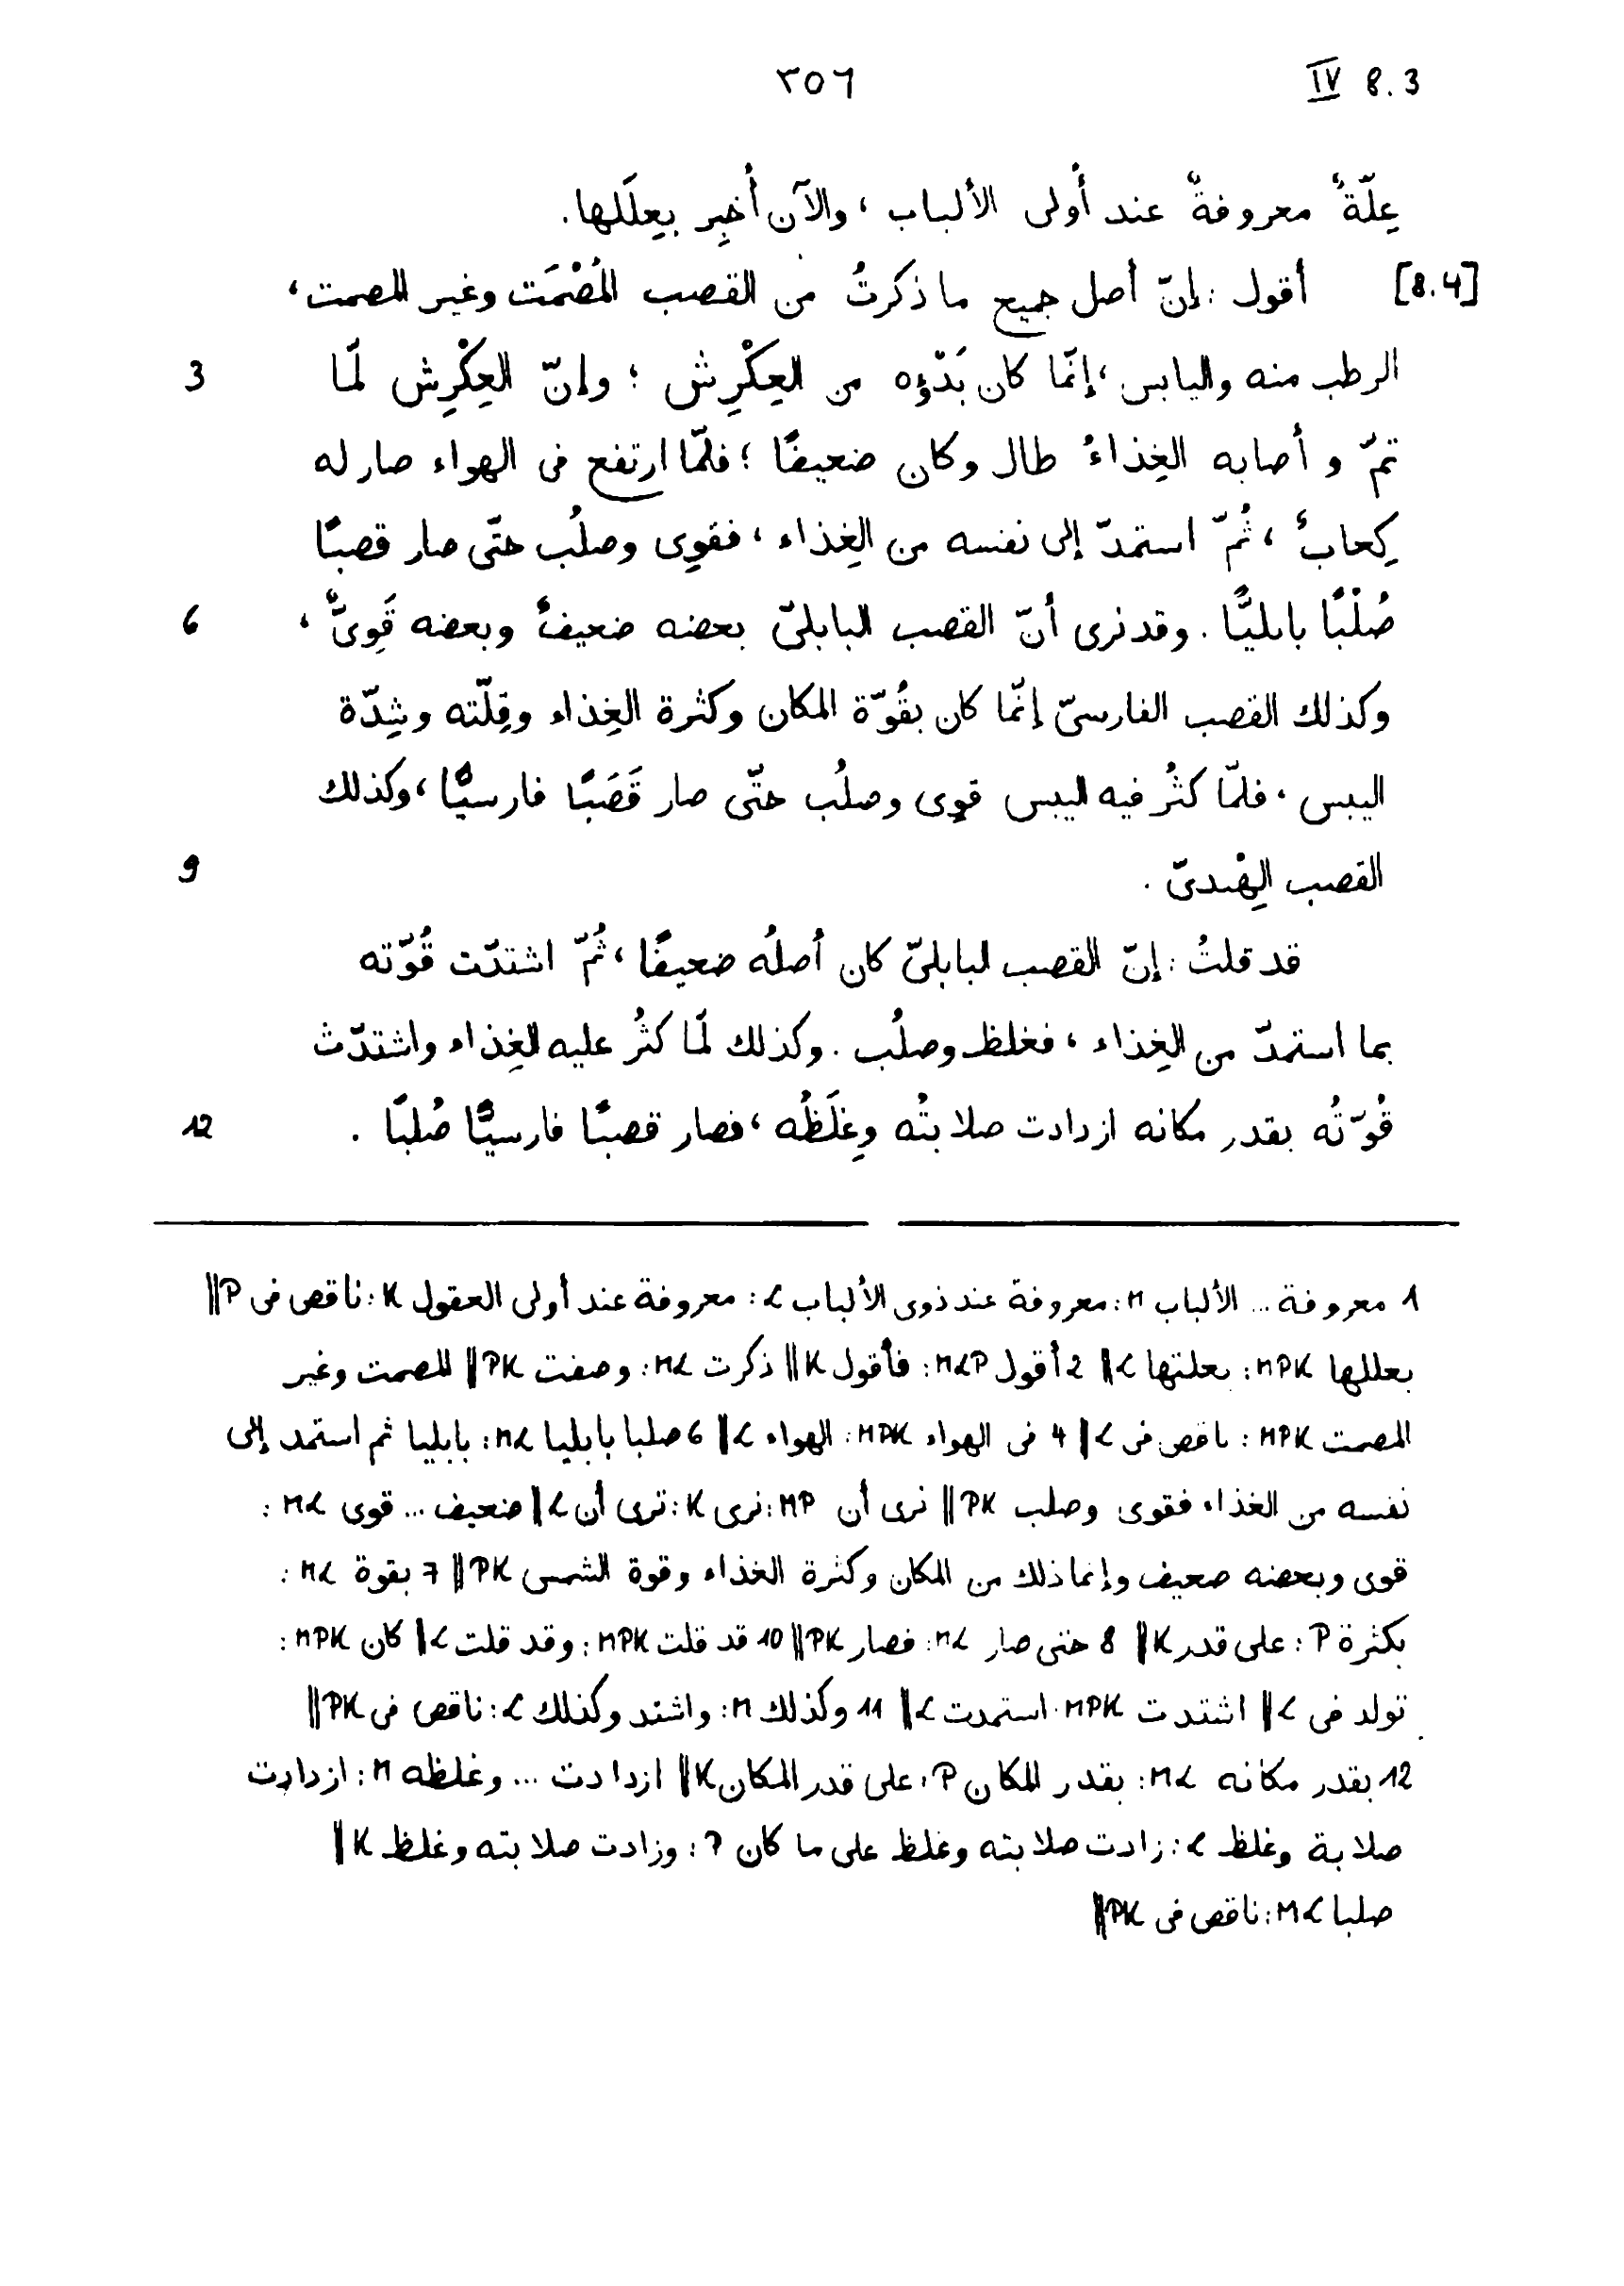 ٣٥٦ IV 8.3
عِلّةٌ معروفةٌ عند أُولى الألباب ، والآن أُخبِر بعِلَلها.
[8.4] أقول : إنّ أصل جميع ما ذكرتُ من القصب المُصْمَت وغير المصمت ،
3 الرطب منه واليابس ، إنّما كان بَدْؤه من العِكْرِش ؛ وإنّ العِكْرِش لمّا
تمّ و أصابه الغِذاءُ طال وكان ضعيفًا ؛ فلمّا ارتفع فى الهواء صار له
كِعابٌ ، ثُمّ استمدّ إلى نفسه من الغِذاء ، فقوِى وصلُب حتّى صار قصبًا
6 صُلْبًا بابليًّا . وقد نرى أنّ القصب البابلىّ بعضه ضعيفٌ وبعضه قَوِىٌّ ،
وكذلك القصب الفارسىّ إنّما كان بقُوّة المكان وكثرة الغِذاء وقِلّته وشِدّة
اليبس ، فلمّا كثُر فيه اليبس قوِى وصلُب حتّى صار قَصَبًا فارسيًّا ، وكذلك
9 القصب الهِنْدىّ .
قد قلتُ : إنّ القصب البابلىّ كان أصلُه ضعيفًا ، ثُمّ اشتدّت قُوّته
بما استمدّ من الغِذاء ، فغلظ وصلُب . وكذلك لمّا كثُر عليه الغِذاء واشتدّت
12 قُوّتُه بقدر مكانه ازدادت صلابتُه وغِلَظُه ، فصار قصبًا فارسيًّا صُلبًا .
1 معروفة ... الألباب M : معروفة عند ذوى الألباب L : معروفة عند أولى العقول K : ناقص فى P ||
بعللها MPK : بعلتها L || 2 أقول MLP : فأقول K || ذكرت ML : وصفت PK || المصمت وغير
المصمت MPK : ناقص فى L || 4 فى الهواء MPK : الهواء L || 6 صلبا بابليا ML : بابليا ثم استمد إلى
نفسه من الغذاء فقوى وصلب PK || نرى أن MP : نرى K : ترى أن L || ضعيف ... قوى ML :
قوى وبعضه ضعيف وإنما ذلك من المكان وكثرة الغذاء وقوة الشمس PK || 7 بقوة ML :
بكثرة P : على قدر K || 8 حتى صار ML : فصار PK || 10 قد قلت MPK : وقد قلت L || كان MPK :
تولد فى L || اشتدت MPK : استمدت L || 11 وكذلك M : واشتد وكذلك L : ناقص فى PK ||
12 بقدر مكانه ML : بقدر المكان P : على قدر المكان K || ازدادت ... وغلظه M : ازدادت
صلابة وغلظ L : زادت صلابته وغلظ على ما كان P : وزادت صلابته وغلظ K ||
صلبا ML : ناقص فى PK ||